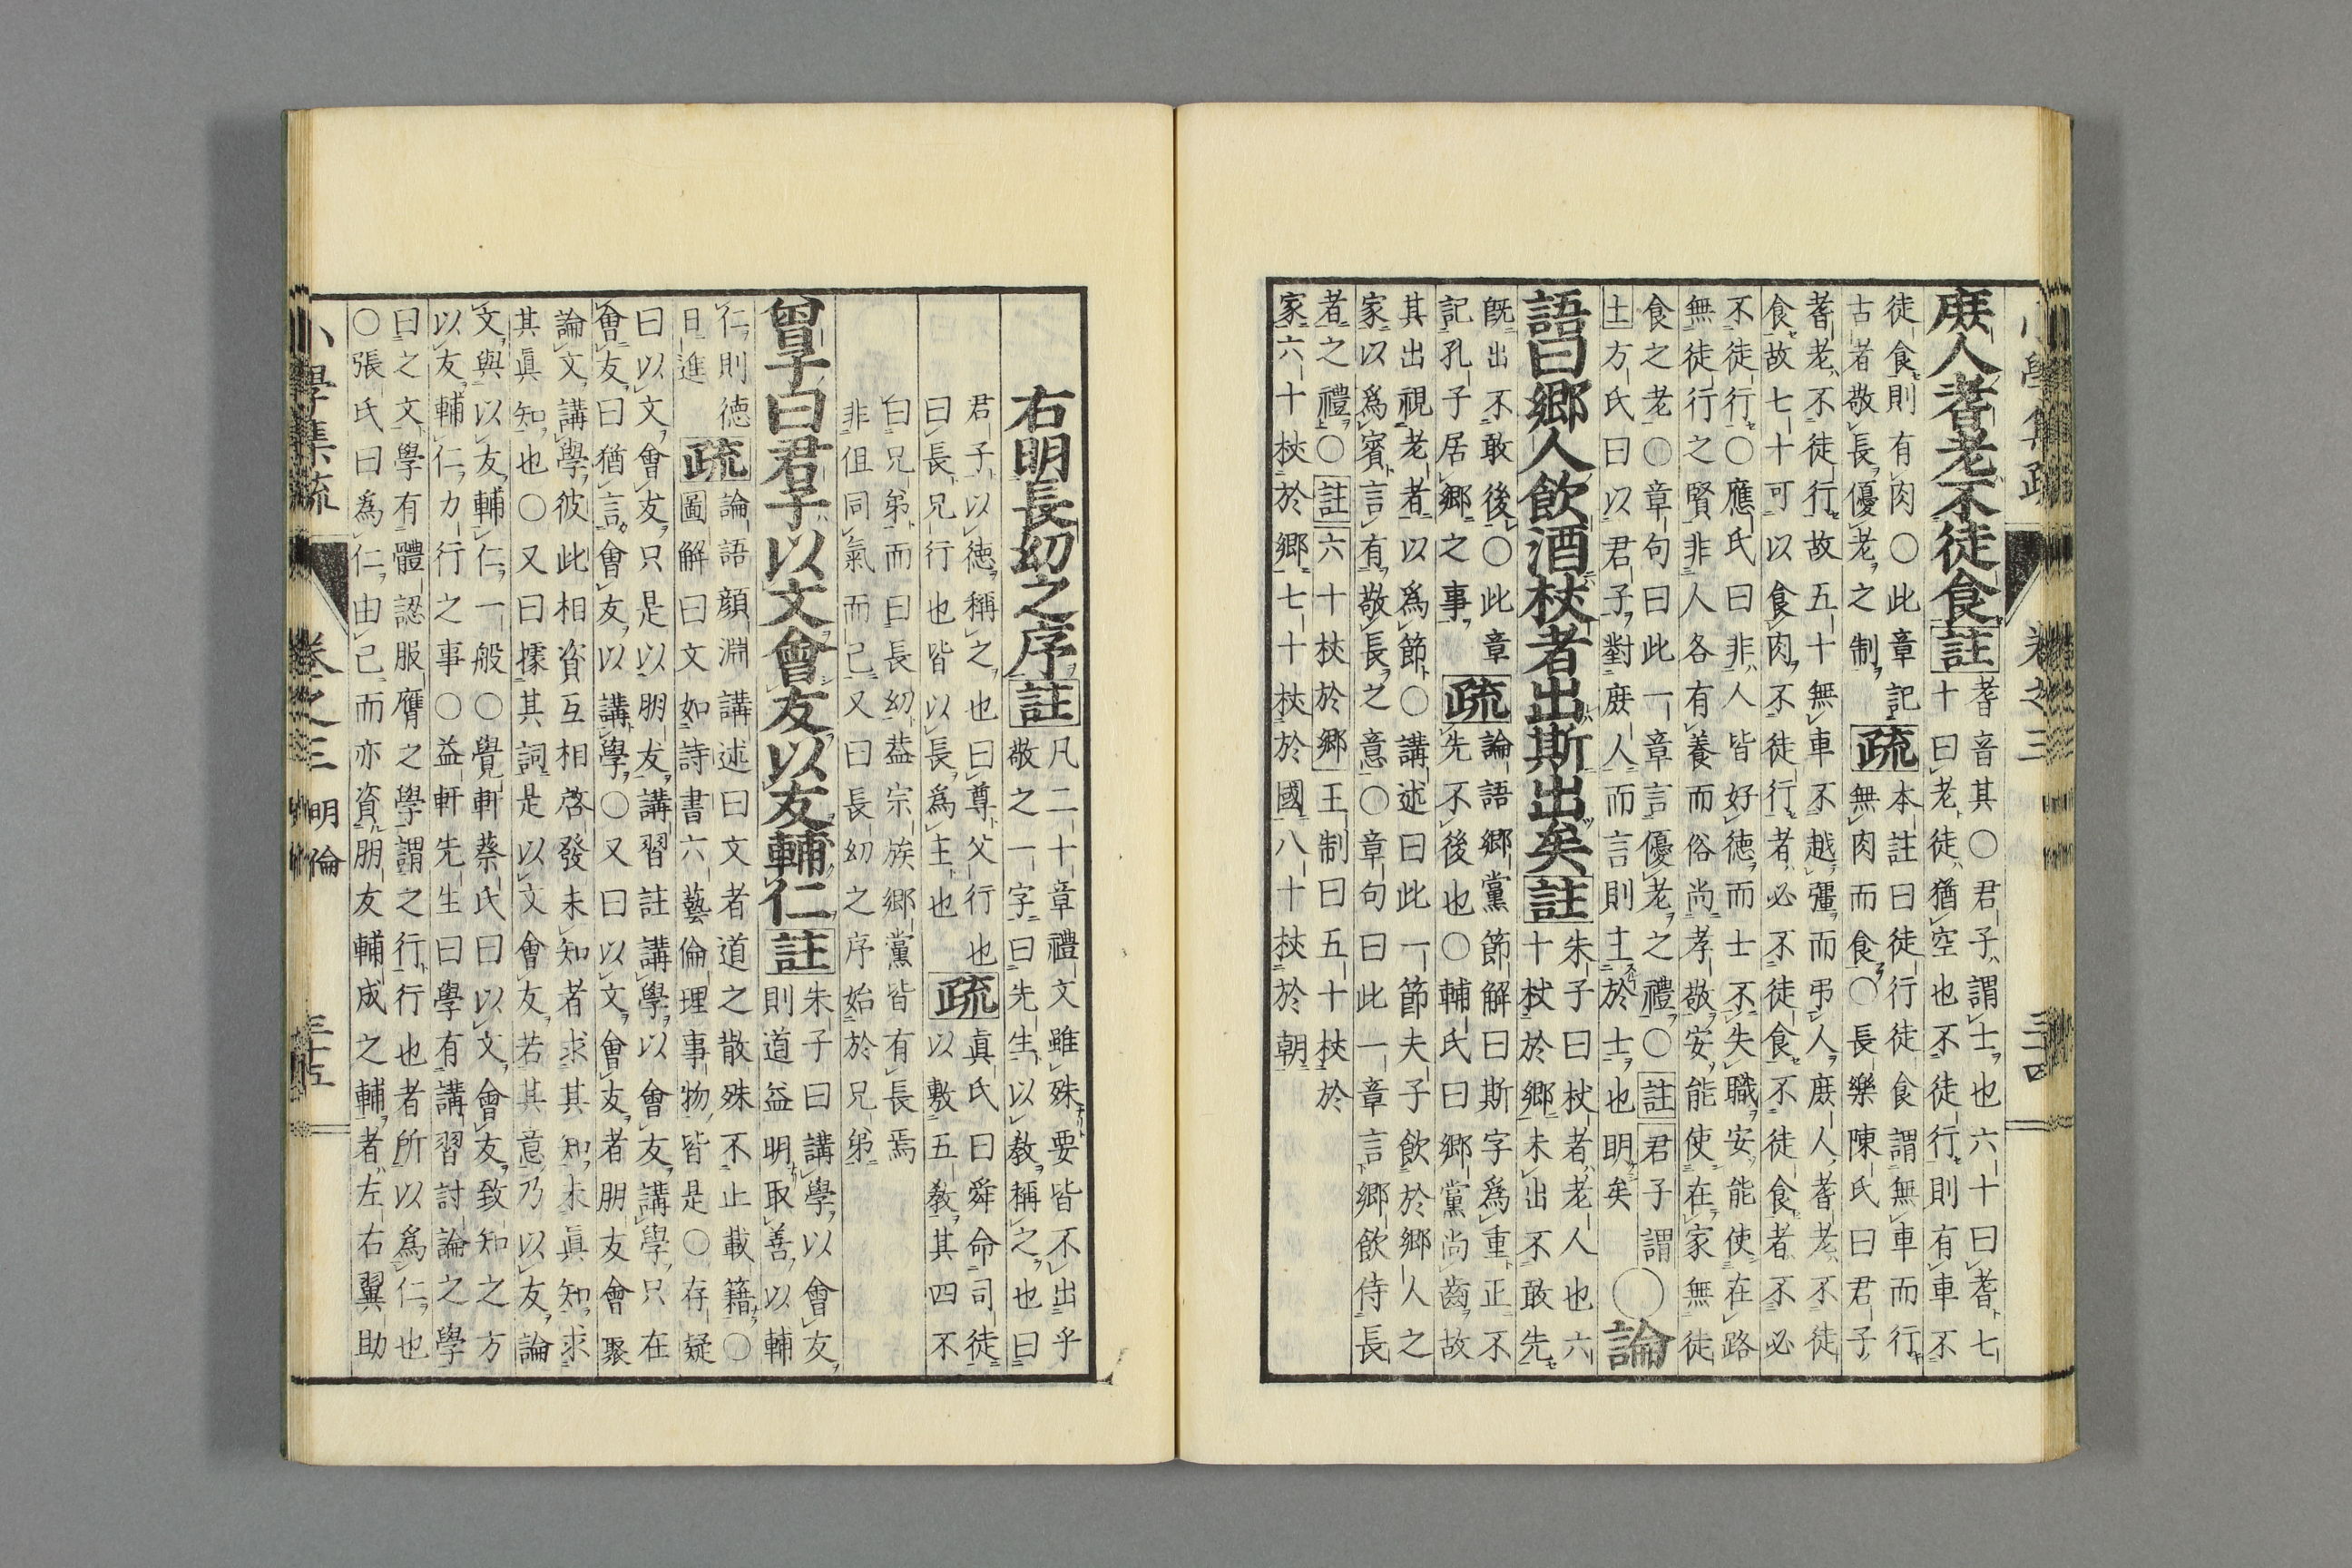 庶人耆老不徒食註
耆音其○君子謂士也六十曰耆七
十曰老徒猶空也不徒行則有車不
徒食則有肉○此章記
古者敬長優老之制
疏
本註曰徒行徒食謂無車而行
無肉而食○長樂陳氏曰君子
耆老不徒行故五十無車不越彊而弔人庶人耆老不徒
食故七十可以食肉不徒行者必不徒食不徒食者不必
不徒行○應氏曰非人皆好德而士不失職安能使在路
無徒行之賢非人各有養而俗尚孝敬安能使在家無徒
食之老○章句曰此一章言優老之禮○註君子謂
士方氏曰以君子對庶人而言則士於士也明矣
○論
語曰鄉人飲酒杖者出斯出矣註
朱子曰杖者老人也六
十杖於鄉未出不敢先
旣出不敢後○此章
記孔子居鄉之事
疏
論語鄉黨節解曰斯字爲重正不
先不後也○輔氏曰鄉黨尚齒故
其出視老者以爲節○講述曰此一節夫子飲於鄉人之
家以爲賓言有敬長之意○章句曰此一章言鄉飲侍長
者之禮○註六十杖於鄉王制曰五十杖於
家六十杖於鄉七十杖於國八十杖於朝
卷之三
三四
右明長幼之序註
凡二十章禮文雖殊要皆不出乎
敬之一字曰先生以教稱之也曰
君子以德稱之也曰尊父行也
曰長兄行也皆以長爲主也
疏
眞氏曰舜命司徒
以敷五教其四不
曰兄弟而曰長幼葢宗族鄉黨皆有長焉
非但同氣而已又曰長幼之序始於兄弟
曾子曰君子以文會友以友輔仁註
朱子曰講學以會友
則道益明取善以輔
仁則德
日進
疏
論語顏淵講述曰文者道之散殊不止載籍○
圖解曰文如詩書六藝倫理事物皆是○存疑
曰以文會友只是以朋友講習註講學以會友講學只在
會友曰猶言會友以講學○又曰以文會友者朋友會聚
論文講學彼此相資互相啓發未知者求其知未眞知求
其眞知也○又曰據其詞是以文會友若其意乃以友論
文與以友輔仁一般○覺軒蔡氏曰以文會友致知之方
以友輔仁力行之事○益軒先生曰學有講習討論之學
曰之文學有體認服膺之學謂之行行也者所以爲仁也
○張氏曰爲仁由己而亦資朋友輔成之輔者左右翼助
小學集疏
卷之三
明倫
三十五